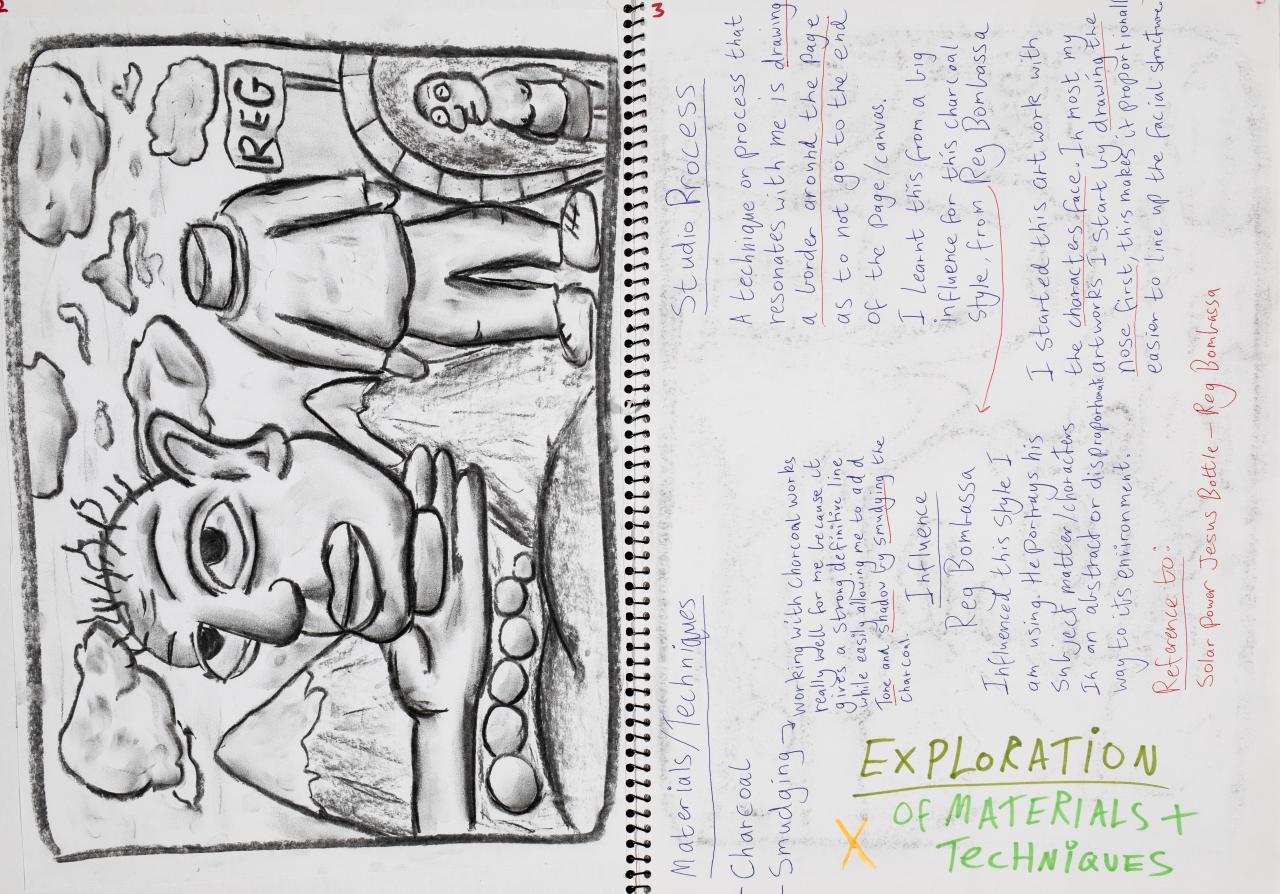 2
REG
3
Materials/Techniques
- Charcoal
- Smudging → working with Charcoal works
really well for me because it
gives a strong definitive line
while easily allowing me to add
Tone and shadow by smudging the
charcoal.
Influence
Reg Bombassa
Influenced this style I
am using. He portrays his
Subject matter/characters
In an abstract or disproportionate
way to its environment.
Reference to:
Solar Power Jesus Bottle - Reg Bombassa
EXPLORATION
OF MATERIALS +
TECHNIQUES
X
Studio Process
A techique or process that
resonates with me is drawing
a border around the page
as to not go to the end
of the page/canvas.
I learnt this from a big
influence for this charcoal
Style, from Reg Bombassa
I started this artwork with
the characters face. In most my
artworks I start by drawing the
nose first, this makes it proportionall
easier to line up the facial structure.